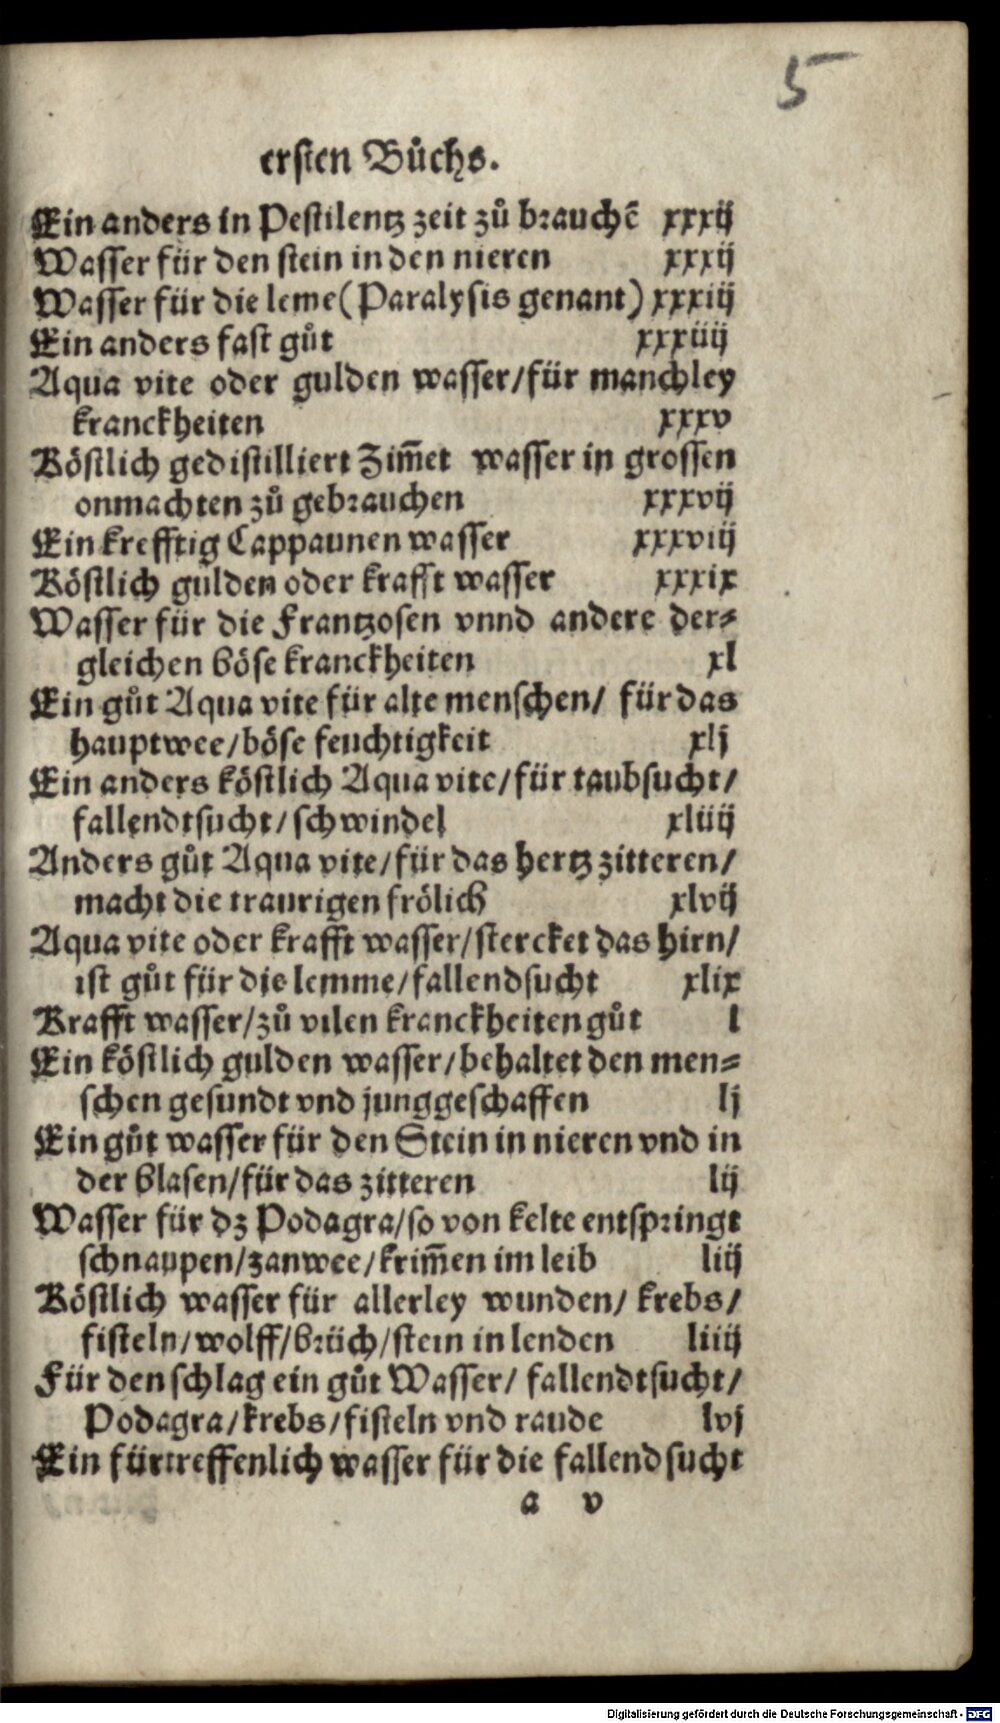 5
ersten Bůchs.
Ein anders in Pestilentz zeit zů brauchē xxxij
Wasser für den stein in den nieren xxxij
Wasser für die leme (Paralysis genant) xxxiij
Ein anders fast gůt xxxiiij
Aqua vite oder gulden wasser/für manchley
kranckheiten xxxv
Köstlich gedistilliert Zim̄et wasser in grossen
onmachten zů gebrauchen xxxvij
Ein krefftig Cappaunen wasser xxxviij
Köstlich gulden oder krafft wasser xxxix
Wasser für die Frantzosen vnnd andere der⸗
gleichen böse kranckheiten xl
Ein gůt Aqua vite für alte menschen/ für das
hauptwee/böse feuchtigkeit xlj
Ein anders köstlich Aqua vite/für taubsucht/
fallendtsucht/schwindel xliiij
Anders gůt Aqua vite/für das hertz zitteren/
macht die traurigen frölich xlvij
Aqua vite oder krafft wasser/stercket das hirn/
ist gůt für die lemme/fallendsucht xlix
Krafft wasser/zů vilen kranckheiten gůt l
Ein köstlich gulden wasser/behaltet den men⸗
schen gesundt vnd junggeschaffen lj
Ein gůt wasser für den Stein in nieren vnd in
der blasen/für das zitteren lij
Wasser für dz Podagra/so von kelte entspringt
schnaupen/zanwee/krim̄en im leib liij
Köstlich wasser für allerley wunden/ krebs/
fisteln/wolff/brüch/stein in lenden liiij
Für den schlag ein gůt Wasser/ fallendtsucht/
Podagra/krebs/fisteln vnd raude lvj
Ein fürtreffenlich wasser für die fallendsucht
a v
Digitalisierung gefördert durch die Deutsche Forschungsgemeinschaft - DFG